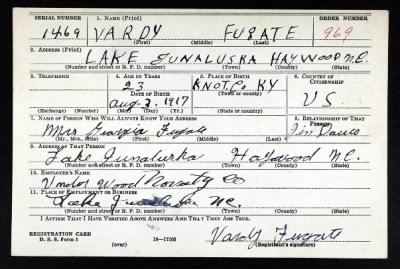 SERIAL NUMBER 1. NAME (Print) ORDER NUMBER
1469 VARDY FUGATE 969
(First) (Middle) (Last)
2. ADDRESS (Print)
LAKE JUNALUSKA HAYWOOD N.C.
(Number and street or R. F. D. number) (Town) (County) (State)
3. TELEPHONE 4. AGE IN YEARS 5. PLACE OF BIRTH 6. COUNTRY OF CITIZENSHIP
23 KNOT, Co KY
DATE OF BIRTH U S
Aug 3. 1917
(Exchange) (Number) (Mo.) (Day) (Yr.) (Town or county) (State or country)
7. NAME OF PERSON WHO WILL ALWAYS KNOW YOUR ADDRESS 8. RELATIONSHIP OF THAT PERSON
Mrs Georgia Fugate
(Mr., Mrs., Miss) (First) (Middle) (Last)
9. ADDRESS OF THAT PERSON
Lake Junaluska Haywood N.C.
(Number and street or R. F. D. number) (Town) (County) (State)
10. EMPLOYER'S NAME
Wood Novelty Co
11. PLACE OF EMPLOYMENT OR BUSINESS
Lake Junaluska N.C.
(Number and street or R. F. D. number) (Town) (County) (State)
I AFFIRM THAT I HAVE VERIFIED ABOVE ANSWERS AND THAT THEY ARE TRUE.
REGISTRATION CARD
D. S. S. Form 1 (over) 16—17105
Vardy Fugate
(Registrant's signature)